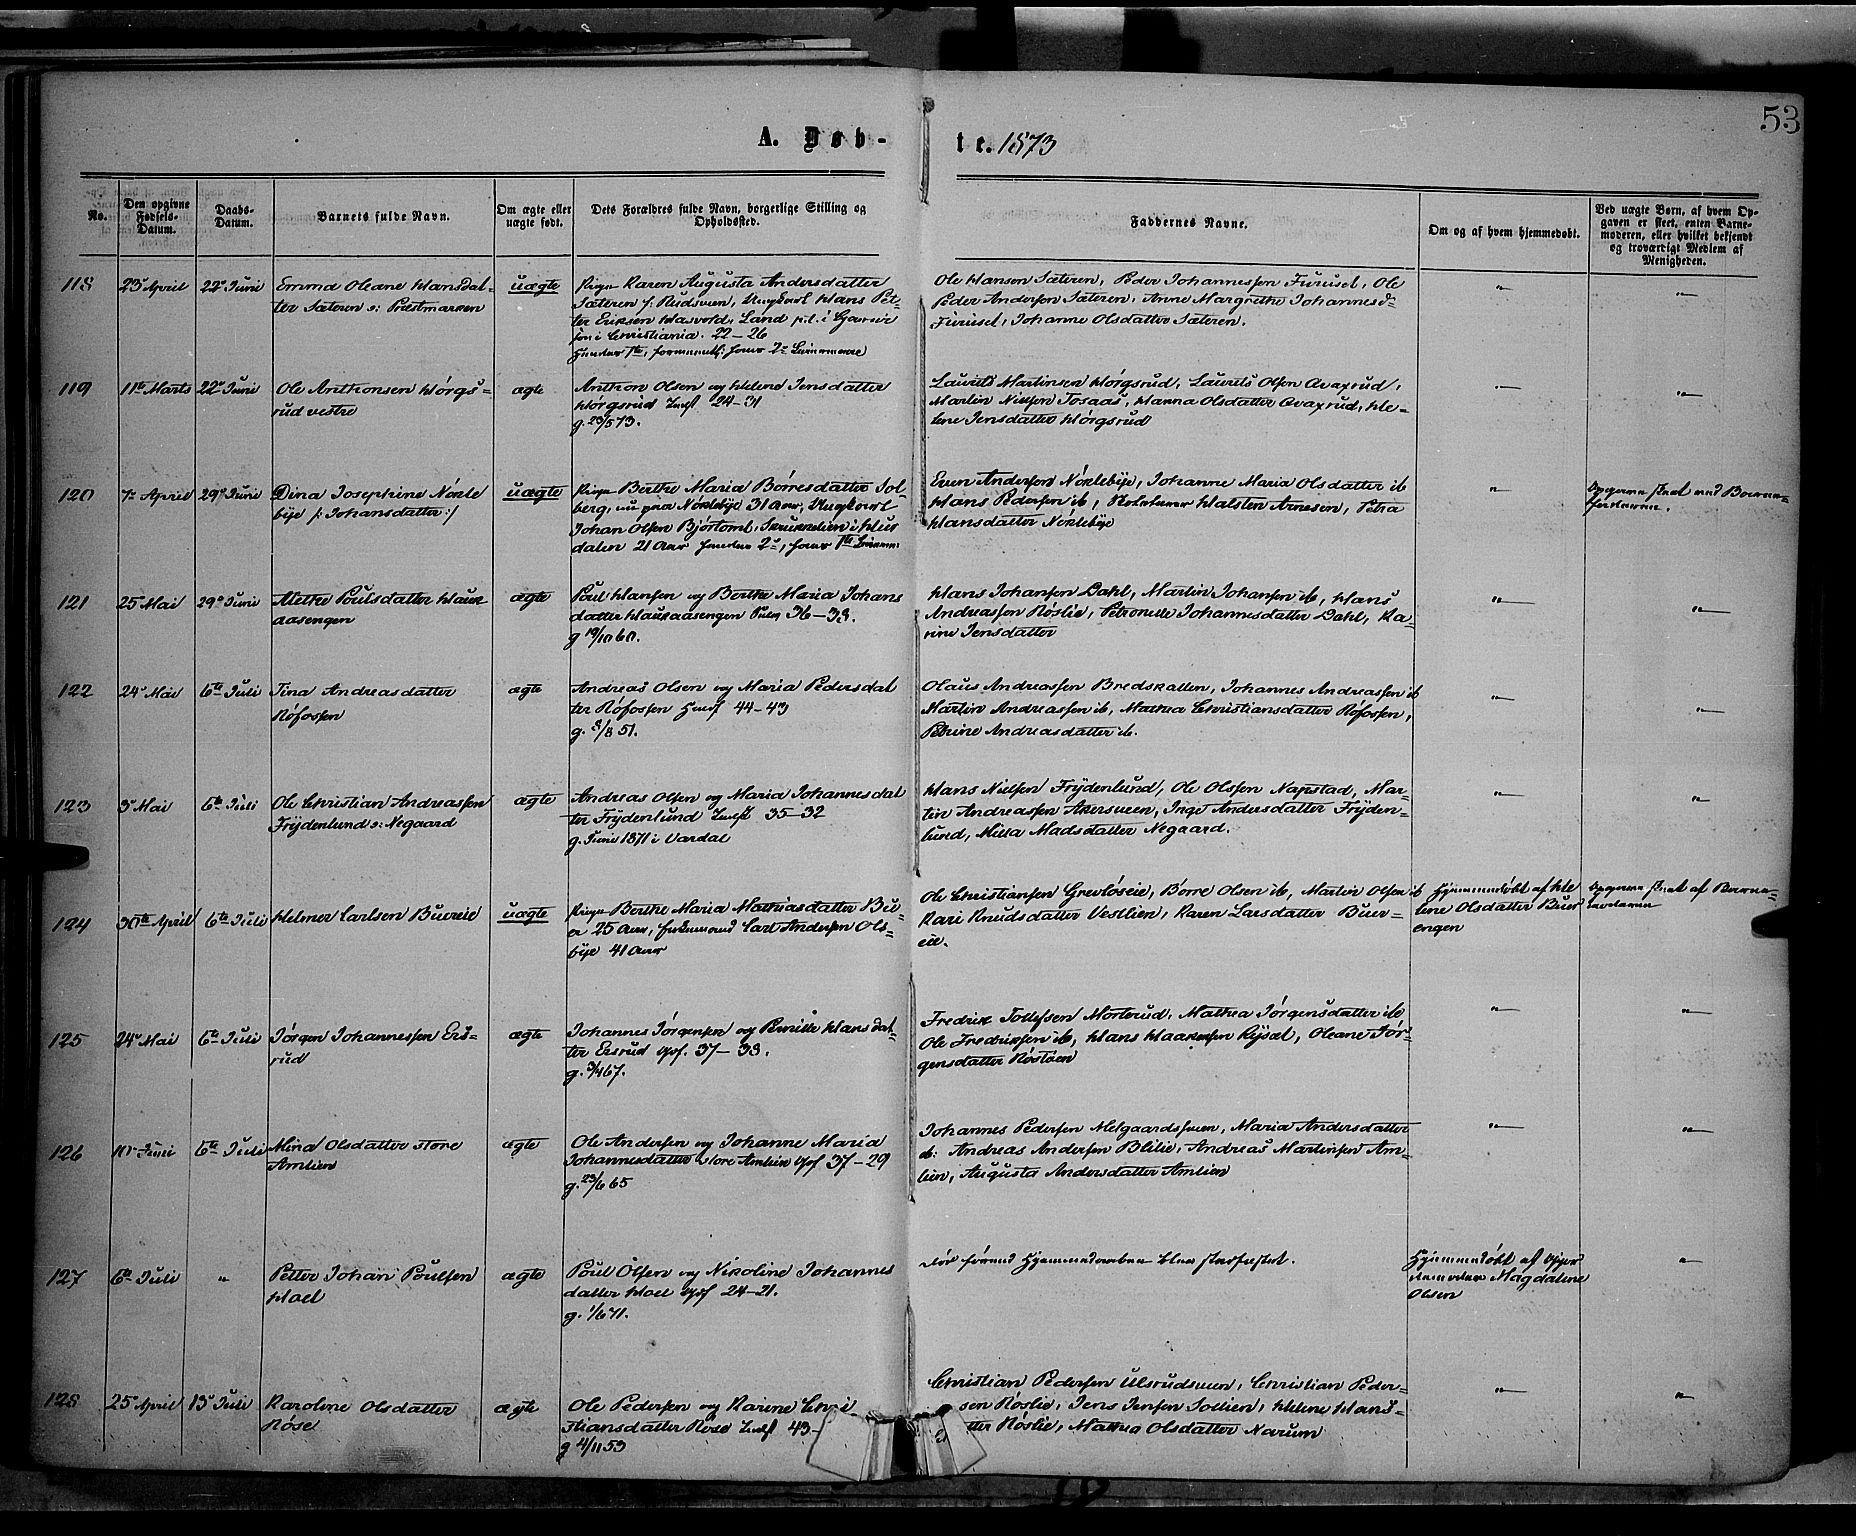 53
A. Døb- te. 1873
No.
Den opgivne Fødsels-Datum.
Daabs-Datum.
Barnets fulde Navn.
Om ægte eller uægte født.
Dets Forældres fulde Navn, borgerlige Stilling og Opholdssted.
Faddernes Navne.
Om og af hvem hjemmedøbt.
Ved uægte Børn, af hvem Op-
gaven er skeet, enten Barne-
moderen, eller hvilket bekjendt
og troværdigt Medlem af
Menigheden.
118 23de April 22de Juni
Emma Oleane Hansdat-
ter Sæteren s: Prestmarken
uægte
Pige Karen Augusta Andersdatter
Sæteren f: Rudsveen, Ungkarl Hans Pet-
ter Eriksen Hasvold, Land p.t. i
i Christiania. 22-26
Hendes 1ste, formentl: hans 2de Leiermaal
Ole Hansen Sæteren, Peder Johannessen Furuset, Ole
Peder Andersen Sæteren, Anne Margrethe Johannesd-
Furuset, Johanne Olsdatter Sæteren.
"
"
119 11te Marts 22de Juni
Ole Anthonsen Hørgs-
rud vestre
ægte
Anthon Olsen og Helene Jensdatter
Hørgsrud Indst 24-31
g. 23/5 73.
Laurits Martinsen Hørgsrud, Laurits Olsen Qvaxrud,
Martin Nielsen Tosaas, Hanna Olsdatter Qvaxrud, He-
lene Jensdatter Hørgsrud
"
"
120 7de April 29de Juni
Dina Josephine Nøkle
bye /: Johansdatter :/
uægte
Pige Berthe Maria Børresdatter Sol-
berg, nu paa Nøklebye 31 Aar, Ungkarl
Johan Olsen Bjørtomt, Skrukkelien i Hur
dalen 21 Aar hendes 2de, hans 1ste Leierm:
Even Andersen Nøklebye, Johanne Maria Olsdatter ib
Hans Pedersen ib, Halsten Arnesen, Petra
Hansdatter Nøklebye
"
Opgaven skeet ved Barne-
faderen.
121 25de Mai 29de Juni
Methe Poulsdatter Hauk
aasengen
ægte
Poul Hansen og Berthe Maria Johans
datter Haukaasengen 36-38.
g 19/10 60.
Hans Johansen Dahl, Martin Johansen ib, Hans
Andreassen Røslie, Petronelle Johannesdatter Dahl, Ka-
rine Jensdatter
"
"
122 24de Mai 6te Juli
Tina Andreasdatter
Røfossen
ægte
Andreas Olsen og Maria Pedersdat
ter Røfossen Husf 44-43
g. 8/8 51.
Olaus Andreassen Bredskallen, Johannes Andreassen ib
Martin Andreassen ib, Mathea Christiansdatter Røfossen,
Petrine Andreasdatter ib.
"
"
123 3de Mai 6te Juli
Ole Christian Andreassen
Frydenlund s: Negaard
ægte
Andreas Olsen og Maria Johannesdat
ter Frydenlund Indst 35-32
g. Juni 1871 i Vardal
Hans Nielsen Frydenlund, Ole Olsen Narstad, Mar-
tin Andreassen Akersveen, Inge Andersdatter Fryden-
lund, Mina Madsdatter Negaard.
"
"
124 30te April 6te Juli
Helmer Carlsen Buereie
uægte
Pige Berthe Maria Mathiasdatter Bu-
er 25 Aar, Enkemand Carl Andersen Ols-
bye 41 Aar
Ole Christiansen Grevløseie, Børre Olsen ib, Martin Olsen ib
Kari Knudsdatter Vestlien, Karen Larsdatter Buer-
eie.
Hjemmedøbt af He
lene Olsdatter Buer
engen
Opgaven skeet af Barne-
faderen
125 24de Mai 6te Juli
Jørgen Johannessen Ers-
rud
ægte
Johannes Jørgensen og Pernille Hansdat-
ter Ersrud Gpf. 37-38.
g. 3/4 67.
Fredrik Tollefsen Morterud, Mathea Jørgensdatter ib
Ole Fredriksen ib, Hans Haakensen Kysæt, Oleane Jør-
gensdatter Røstøen
"
"
126 10de Juni 6te Juli
Mina Olsdatter store
Amlien
ægte
Ole Andersen og Johanne Maria
Johannesdatter store Amlien Gpf 37-29
g. 23/6 65
Johannes Pedersen Melgaardsveen, Maria Andersdatter
ib. Andreas Andersen Blilie, Andreas Martinsen Am-
lien, Augusta Andersdatter Amlien
"
"
127 6te Juli "
Petter Johan Poulsen
Hoel
ægte
Poul Olsen og Nikoline Johannes
datter Hoel Gpf 24-21.
g. 1/6 71.
døde førend Hjemmedaaben blev stadfæstet.
Hjemmedøbt af Gjor
demoder Magdalene
Olsen
"
128 25de April 13de Juli
Karoline Olsdatter
Røse
ægte
Ole Pedersen og Karine Chri
stiansdatter Røse Indst 43-
g 4/11 53
Christian Pedersen Ulsrudsveen, Christian Peder-
sen Røslie, Jens Jensen Sollien, Helene Hans-
tter Røslie, Mathea Olsdatter Narum
"
"